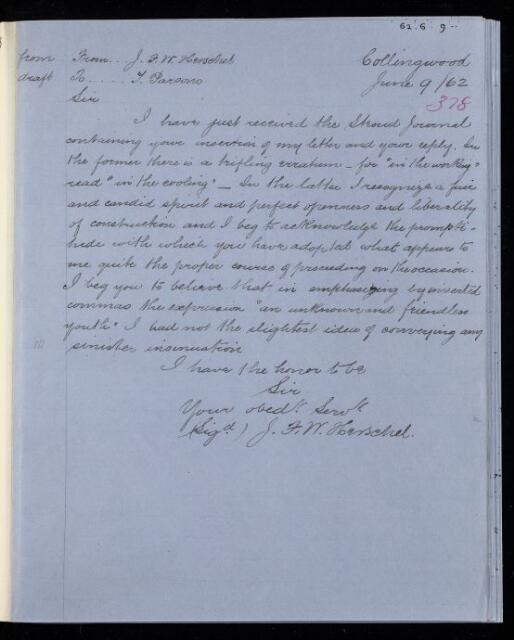 62.6.9
from From.. J. F. W. Herschel Collingwood
draft To.... T. Parsons June 9/62
Sir 378
I have just received the Stroud Journal
containing your insertion of my letter and your reply. In
the former there is a trifling erratum - for "in the working"
read "in the cooling" - In the latter I recognize a fair
and candid spirit and perfect openness and liberality
of construction and I beg to acknowledge the prompti-
tude with which you have adopted what appears to
me quite the proper course of proceeding on the occasion.
I beg you to believe that in emphasizing by inverted
commas the expression "an unknown and friendless
youth" I had not the slightest idea of conveying any
sinister insinuation
I have the honor to be
Sir
Your obedt. Servt.
(Sigd) J. F. W. Herschel.